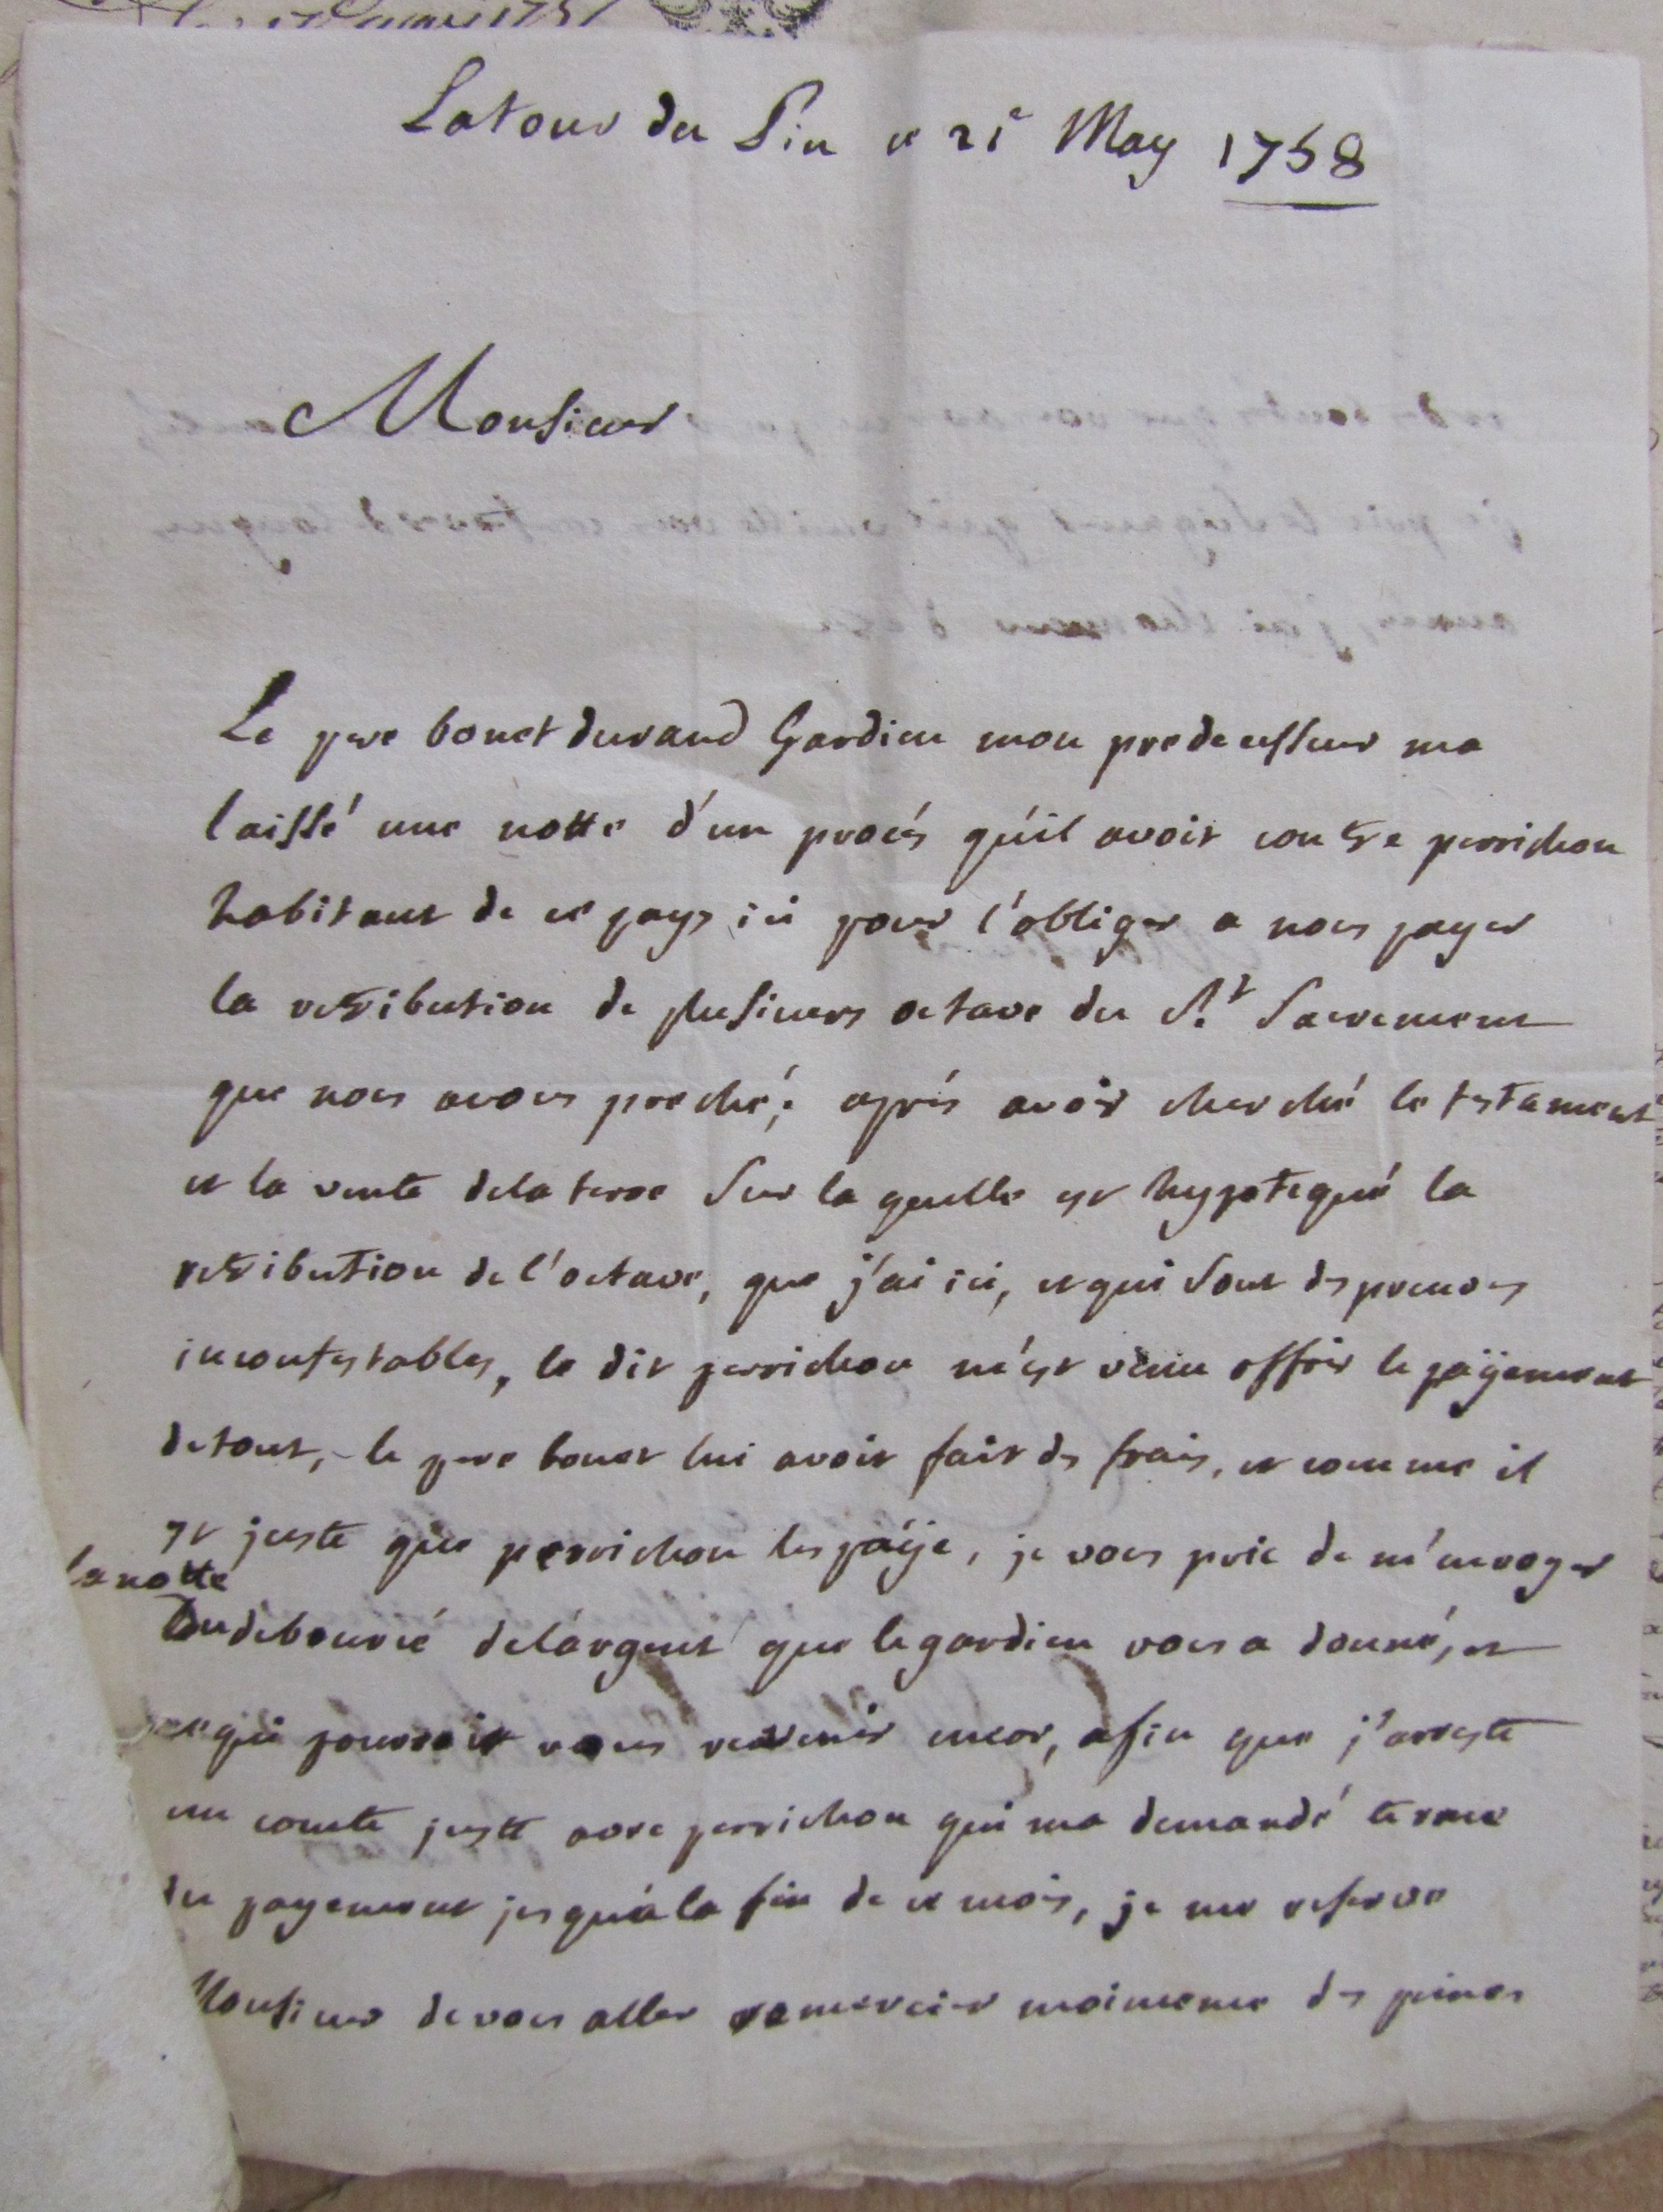 Latour du Pin ce 21e May 1758
Monsieur
Le pere bonet durand Gardien mon predecesseur ma
laissé une notte d'un procés qu'il avoit contre perrichon
habitant de ce pays ici pour l'obliger a nous payer
la retribution de plusieurs octave du St Sacrement
que nous avons preché; aprés avoir cherché le testament
et la vente dela terre sur la quelle est hypotequé la
retribution de l'octave, que j'ai ici, et qui sont des preuves
incontestables, le dit perrichon m'est venu offrir le payement
detout, le pere bonet lui avoit fait des frais, et comme il
est juste que perrichon les paÿe, je vous prie de m'envoyer
la notte
du debourcé del'argent que le gardien vous a donné, et
ce qui pourroit vous revenir encor, afin que j'arreste
un conte juste avec perrichon qui ma demandé terme
du payement jusqu'a la fin de ce mois, je me reserve
Monsieur de vous aller remercier moimeme des peines